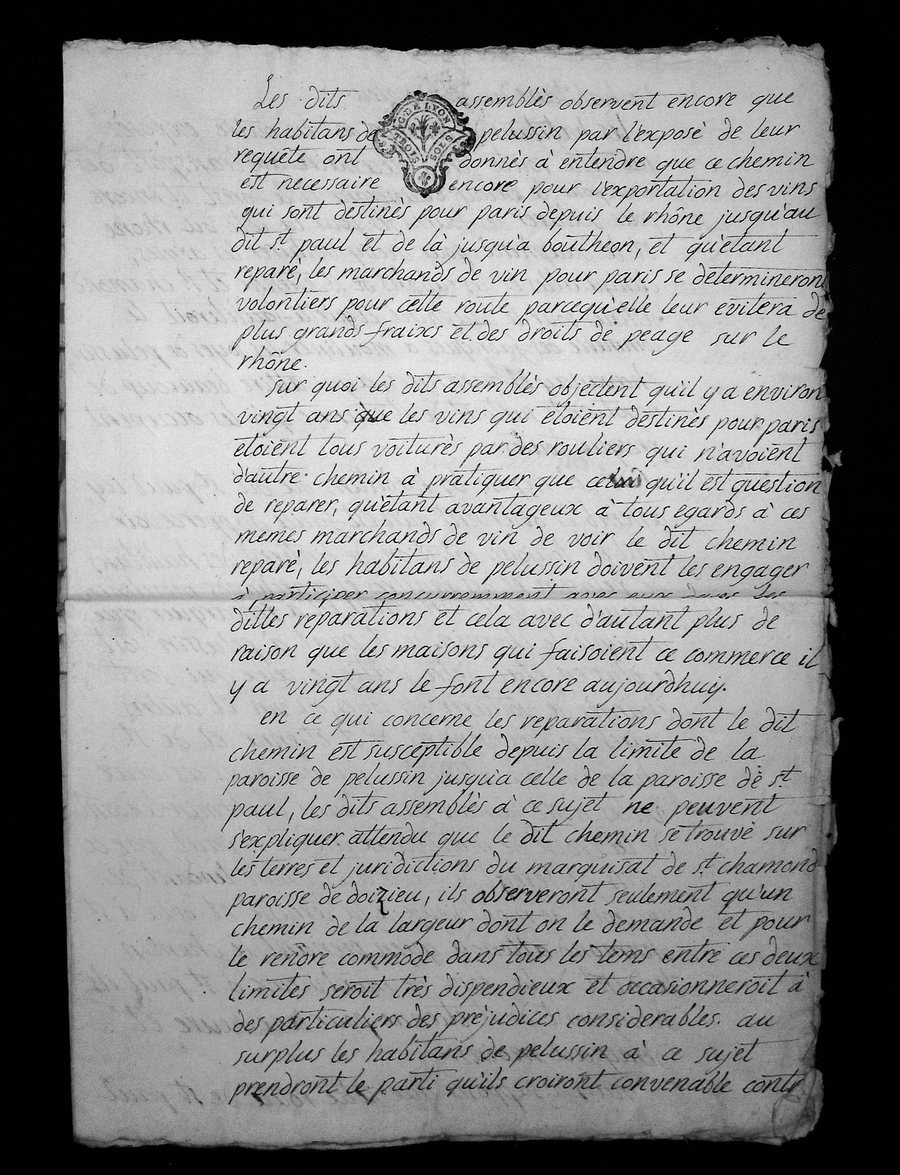 Les dits assemblès observent encore que
les habitans de pelussin par l'exposé de leur
requête ont donnés à entendre que ce chemin
est necessaire encore pour l'exportation des vins
qui sont destinés pour paris depuis le rhône jusqu'au
dit st. paul et de là jusqu'a boutheon, et qu'etant
reparé, les marchands de vin pour paris se determineront
volontiers pour cette route parcequ'elle leur evitera de
plus grands fraixs et des droits de peage sur le
rhône.
Sur quoi les dits assemblès objectent qu'il y a environ
vingt ans que les vins qui étoient destinés pour paris
etoient tous voiturés par des rouliers qui n'avoient
d'autre chemin à pratiquer que celui qu'il est question
de reparer, qu'étant avantageux à tous egards à ces
memes marchands de vin de voir le dit chemin
reparé, les habitans de pelussin doivent les engager
à participer concurremment avec eux dans les
dittes reparations et cela avec d'autant plus de
raison que les maisons qui faisoient ce commerce il
y a vingt ans le font encore aujourdhuy.
en ce qui concerne les reparations dont le dit
chemin est susceptible depuis la limite de la
paroisse de pelussin jusqu'a celle de la paroisse de st.
paul, les dits assemblès à ce sujet ne peuvent
s'expliquer attendu que le dit chemin se trouve sur
les terres et juridictions du marquisat de st. chamond
paroisse de doizieu, ils observeront seulement qu'un
chemin de la largeur dont on le demande et pour
le rendre commode dans tous les tems entre ces deux
limites seroit très dispendieux et occasionneroit à
des particuliers des préjudices considerables. au
surplus les habitans de pelussin à ce sujet
prendront le parti qu'ils croiront convenable contr
G. DE LYON
TROIS SOLS